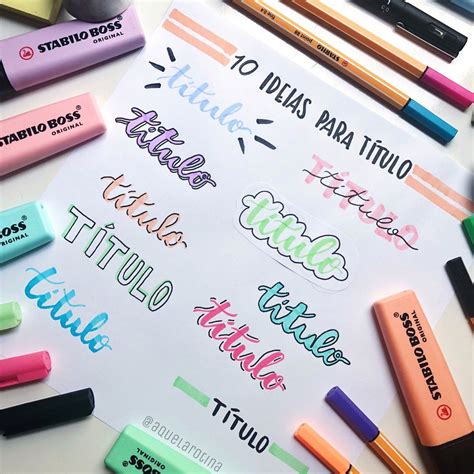 STABILO BOSS
ORIGINAL
STABILO BOSS
ORIGINAL
STABILO
10 IDEIAS PARA TÍTULO
título
título
TÍTULO
título
título
título
TÍTULO
título
título
título
TÍTULO
@aquelarocina
STABILO BOSS
ORIGINAL
STABILO BOSS
ORIGINAL
STABILO BOSS
ORIGINAL